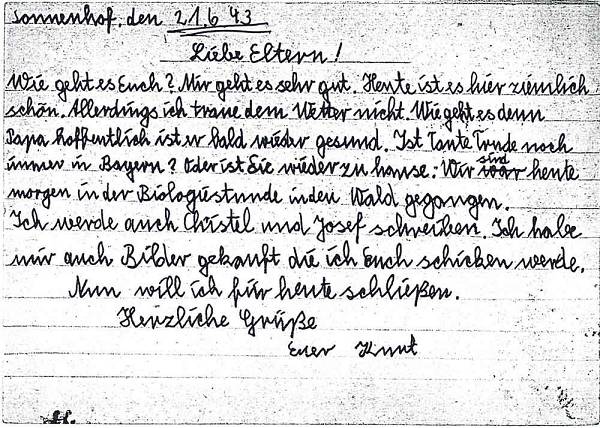 Sonnenhof, den 21.6 43
Liebe Eltern!
Wie geht es Euch? Mir geht es sehr gut. Heute ist es hier ziemlich
schön. Allerdings ich traue dem Wetter nicht. Wie geht es denn
Papa hoffentlich ist er bald wieder gesund. Ist Tante Trude noch
immer in Bayern? Oder ist Sie wieder zu hause. Wir sind heute
morgen in der Biologiestunde in den Wald gegangen.
Ich werde auch Christel und Josef schreiben. Ich habe
mir auch Bilder gekauft die ich Euch schicken werde.
Nun will ich für heute schließen.
Herzliche Grüße
Euer Knut